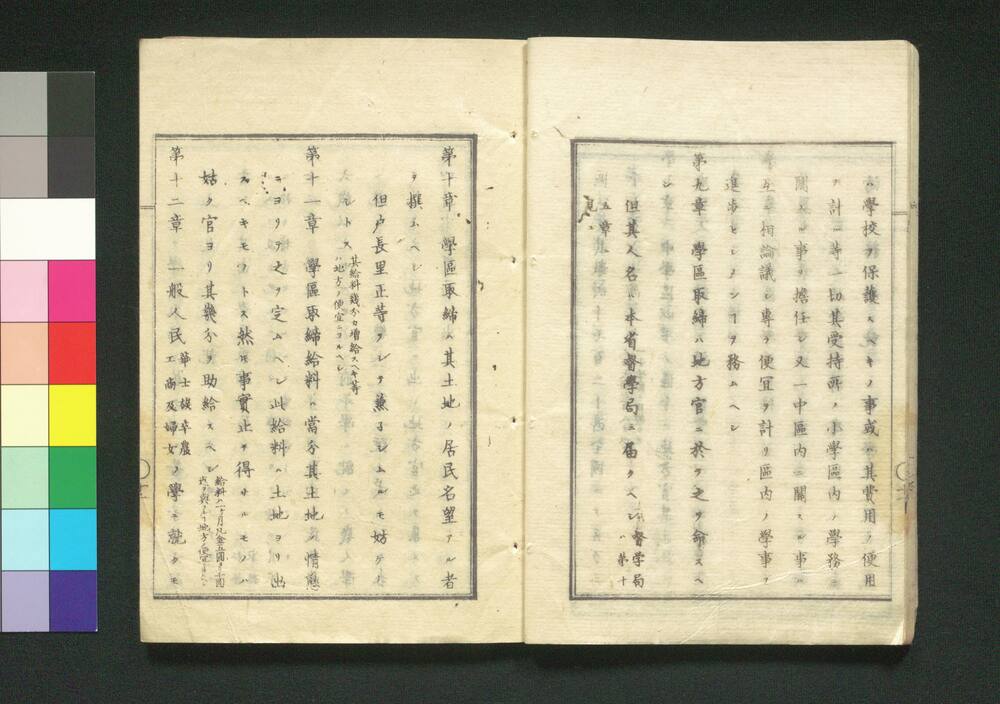 ハ學校ヲ保護スヘキノ事或ハ其費用ノ使用
ヲ計ル等一切其受持所ノ小學區内ノ學務ニ
關スル事ヲ擔任シ又一中區内ニ關スル事ハ
互ニ相論議シ專ラ便宜ヲ計リ區内ノ學事ヲ
進歩セシメンコヲ務ムヘシ
第九章 學區取締ハ地方官ニ於テ之ヲ命スヘ
シ
但其人名ハ本省督學局ニ届クヘシ 督學局ハ第十
五章
見ユ
第十章 學區取締ハ其土地ノ居民名望アル者
ヲ撰ムヘシ
但戸長里正等ヲシテ兼子シムルモ妨ケナ
シトス 其給料幾分カ増給スヘキ等ハ地方ノ便宜ニヨルヘシ
第十一章 學區取締給料ハ當分其土地ノ情態
ニヨリテ之ヲ定ムヘシ此給料ハ土地ヨリ出
スヘキモノトス然モ事實止ヲ得サルモノハ
姑ク官ヨリ其幾分ヲ助給スヘシ 給料ハ一ケ月凡金五圓ヨリ十圓
第十二章 一般人民 華士族卒農工商及婦女 ノ學ニ就クモ